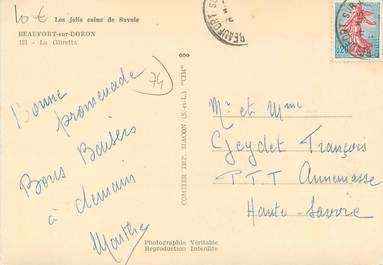 10 €
Les jolis coins de Savoie
BEAUFORT-sur-DORON
121 - La Gitretta
74
Bonne
promenade
Bons Baisers
à demain
Marthe
COMBIER IMP. MACON (S.-et-L.) "CIM"
BEAUFORT S
0,20
Mr et Mme
Geydet François
P.T.T Annemasse
Haute-Savoie
Photographie Véritable
Reproduction Interdite